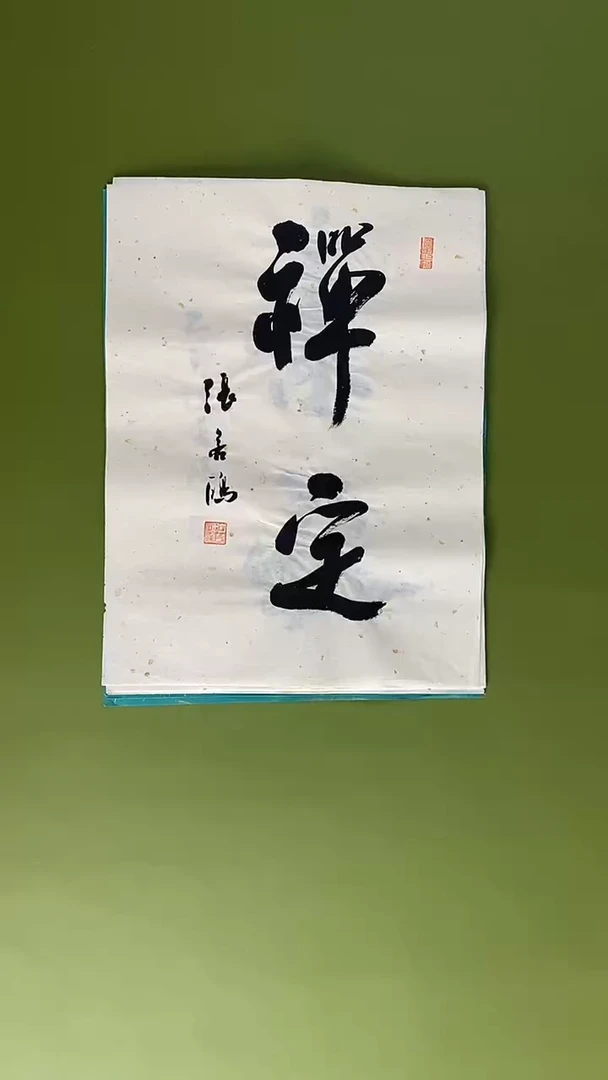 禪定
張名鴻